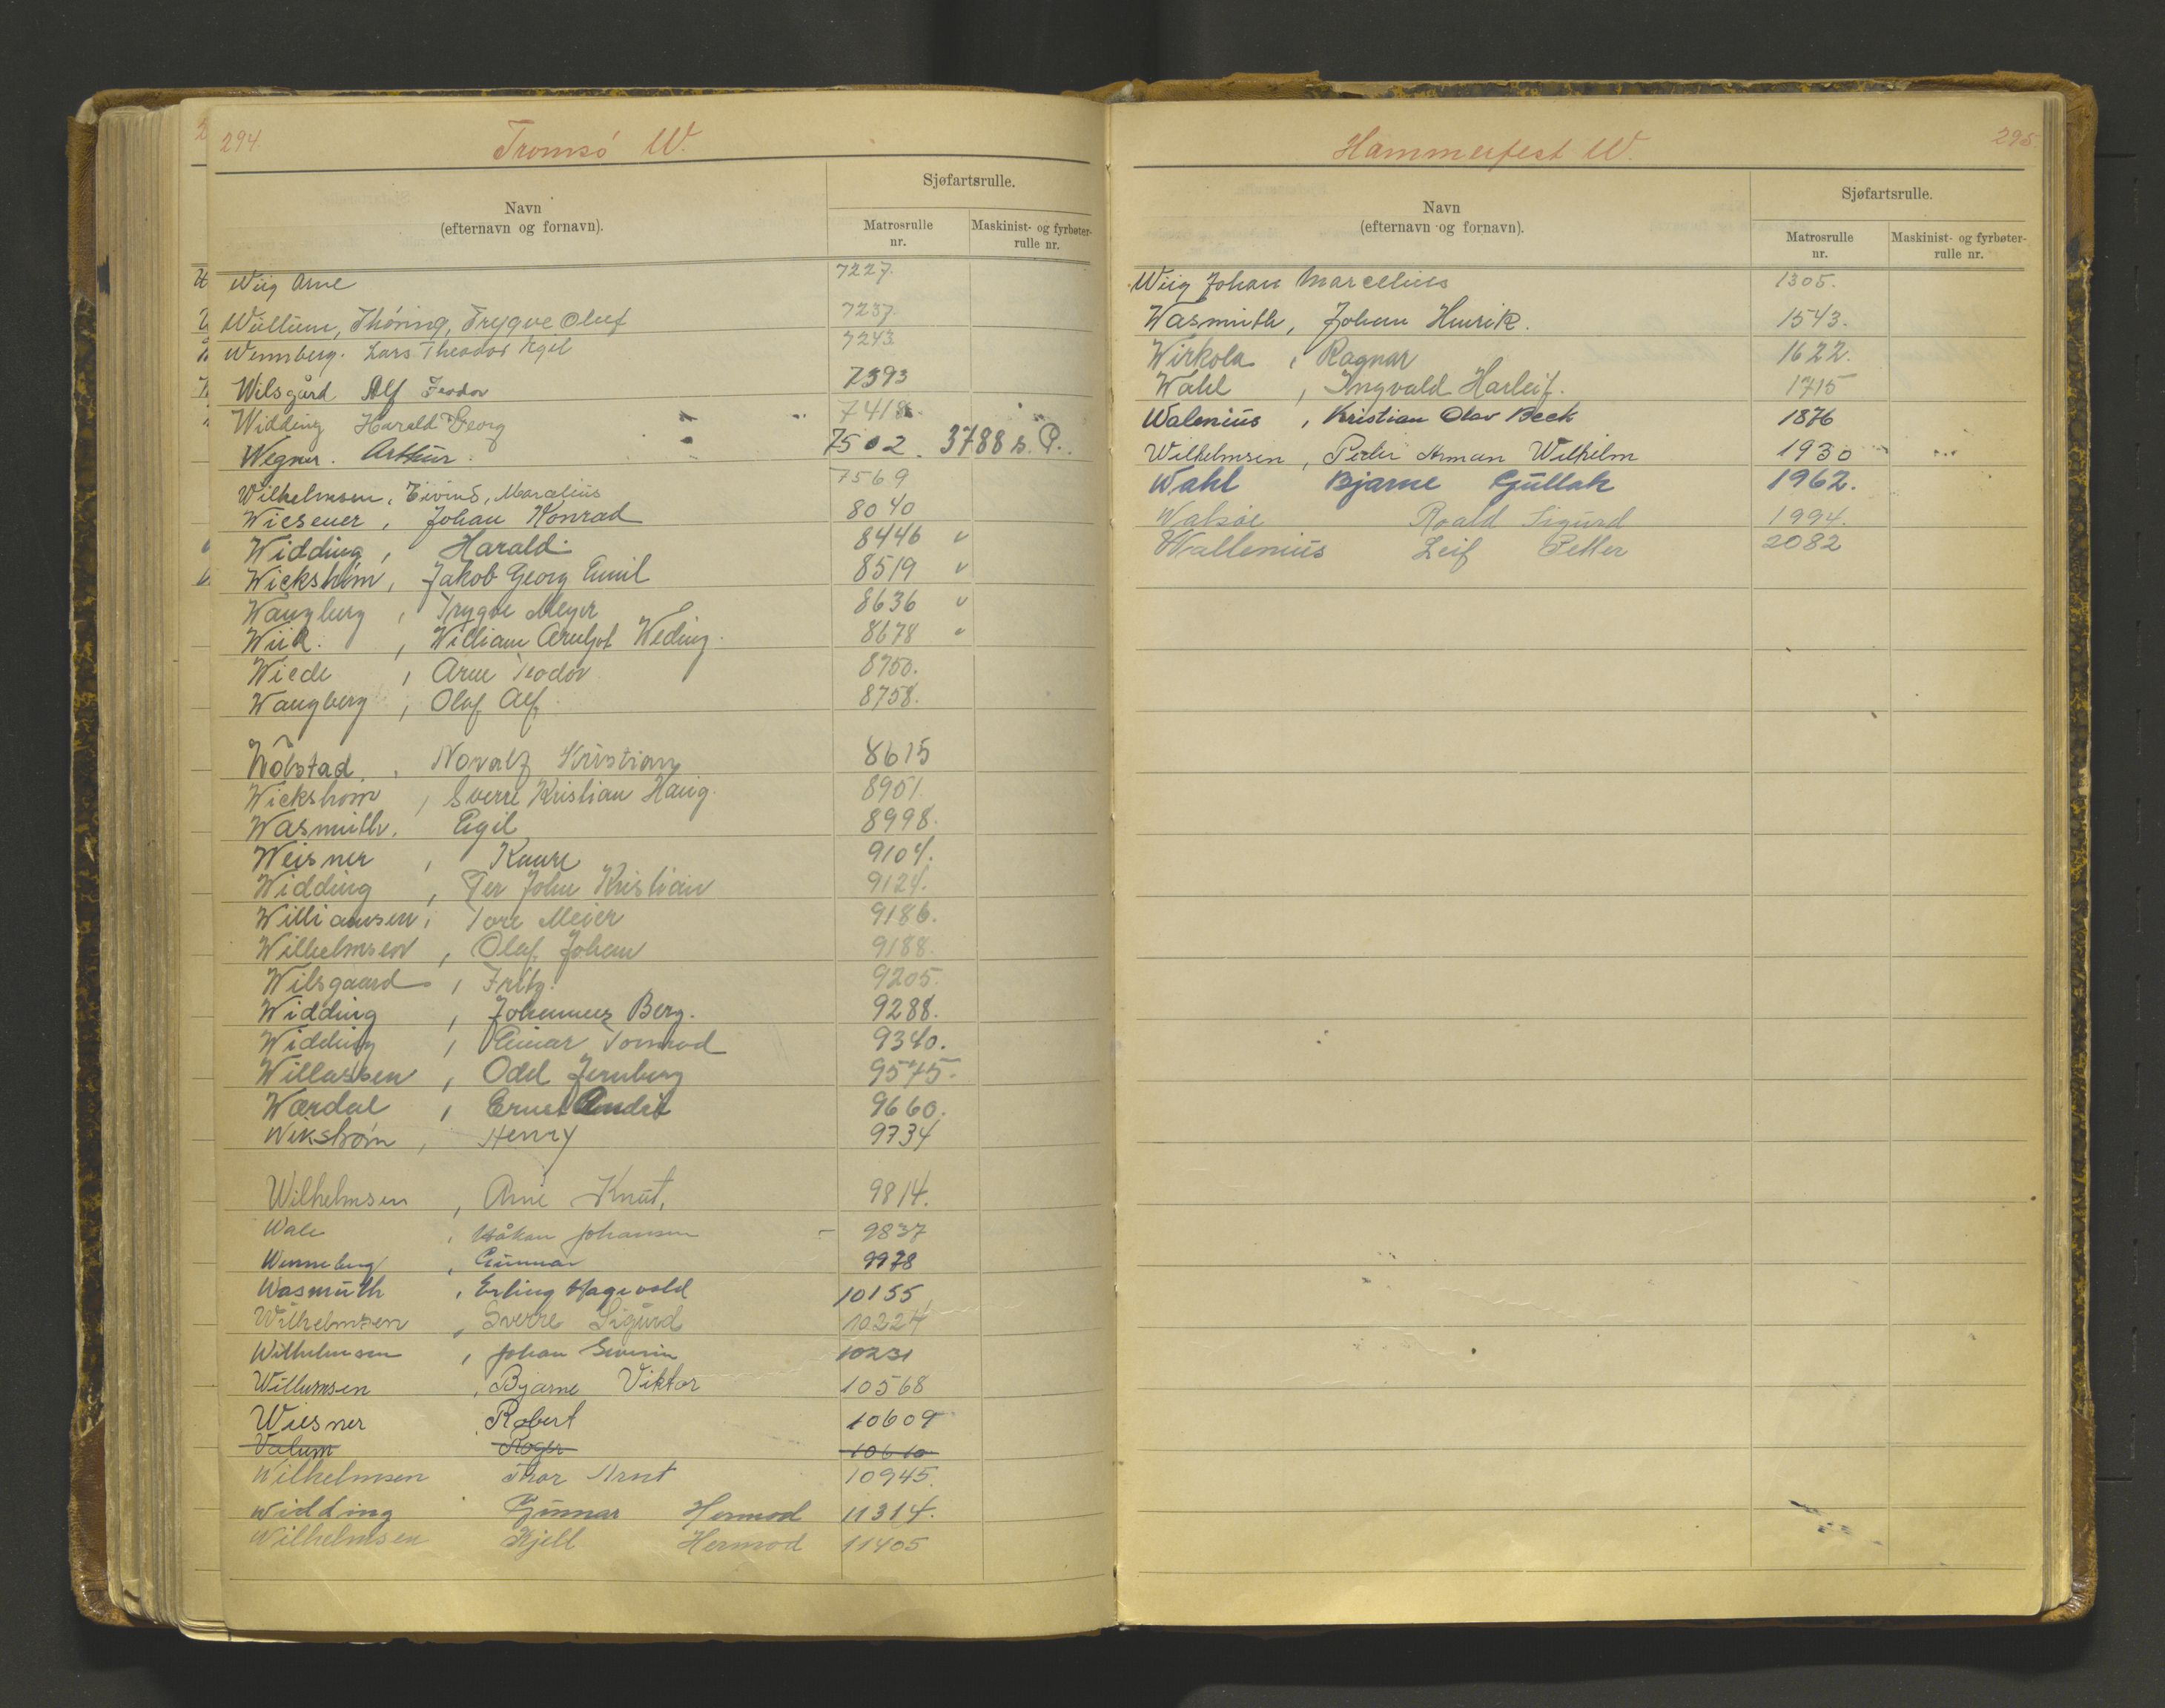 294.
Tromsø W.
Navn
(efternavn og fornavn).
Sjøfartsrulle.
Matrosrulle
nr.
Maskinist- og fyrbøter-
rulle nr.
Wiig Arne 7227.
Wüllum, Thóning, Trygve Oluf 7237.
Wennberg. Lars Theodor Egil 7243.
Wilsgård Alf Feodor 7393
Widding Harald Georg 7418.
Wegner. Arthur. 7502. 3788 s. P.
Wilhelmsen, Eivind, Marcelius 7569
Wiesener, Johan Konrad 8040
Widding, Harald 8446 v
Wickstrøm, Jakob Georg Emil 8519 v
Wangberg, Trygve Meyer 8636 v
Wiik, William Arntzot Weding. 8678 v
Wiede, Arne Teodor 8750.
Wangberg, Olaf Alf. 8758.
Wolstad, Noralf Kristian 8615
Wickstrøm, Sverre Kristian Haug. 8951.
Wasmuth, Egil 8998.
Weisner, Kaare 9104.
Widding, Per John Kristian 9124.
Williamsen, Tore Meier 9186.
Wilhelmsen, Olaf Johan 9188.
Wilsgaard, Fritz. 9205.
Widding, Johannes Berg. 9288.
Widding, Einar Tormod 9340.
Willassen, Odd Jernberg 9575.
Wærdal, Ernst 9660.
Wikstrøm, Henry 9734
Wilhelmsen, Arne Knut, 9814.
Wale, Håkon Johansen 9837
Wenneberg, Gunnar 9978
Wasmuth, Erling Hagevold 10155
Wilhelmsen, Sverre Sigurd 10224
Wilhelmsen, Johan Severin 10231
Willumsen, Bjarne Viktor 10568
Wiesner Robert 10609
Valum Roger 10610
Wilhelmsen Thor Arnt 10945.
Widding Gunnar Hermod 11314.
Wilhelmsen Kjell Hermod 11405
295.
Hammerfest W.
Navn
(efternavn og fornavn).
Sjøfartsrulle.
Matrosrulle
nr.
Maskinist- og fyrbøter-
rulle nr.
Wiig Johan Marcelius 1305.
Wasmuth, Johan Henrik. 1543.
Wirkola, Ragnar 1622.
Wahl, Ingvald Harleif. 1715
Walenius, Kristian Olav Beck 1876
Wilhelmsen, Peder Herman Wilhelm 1930
Wahl Bjarne Gullak 1962.
Walsøe Roald Sigurd 1994.
Wallenius Leif Petter 2082